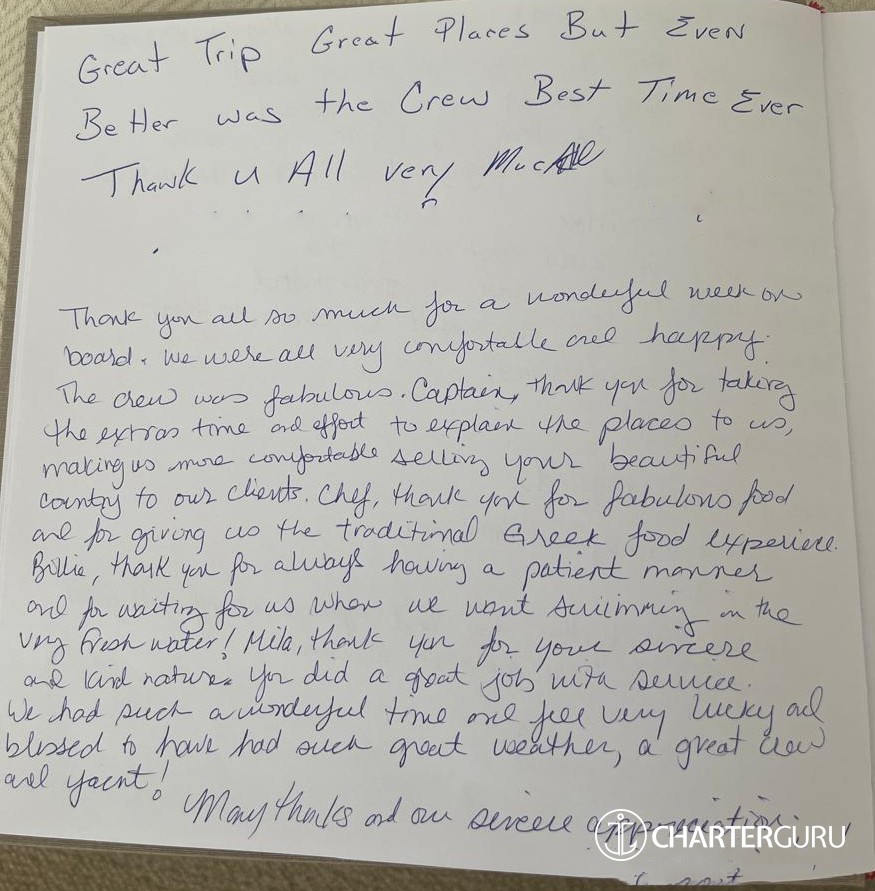 Great Trip Great Places But Even
Better was the Crew Best Time Ever
Thank u All very Much
Thank you all so much for a wonderful week on
board. We were all very comfortable and happy.
The crew was fabulous. Captain, thank you for taking
the extras time and effort to explain the places to us,
making us more comfortable selling your beautiful
country to our clients. Chef, thank you for fabulous food
and for giving us the traditional Greek food experience.
Billie, thank you for always having a patient manner
and for waiting for us when we went swimming in the
very fresh water! Mila, thank you for your sincere
and kind nature. You did a great job with service.
We had such a wonderful time and feel very lucky and
blessed to have had such great weather, a great crew
and yacht!
Many thanks and our sincere appreciation.
CHARTERGURU